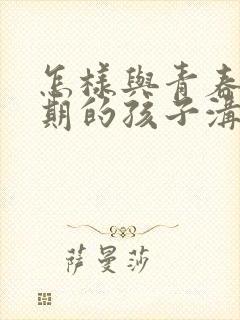 怎樣與青春
期的孩子溝
萨曼莎